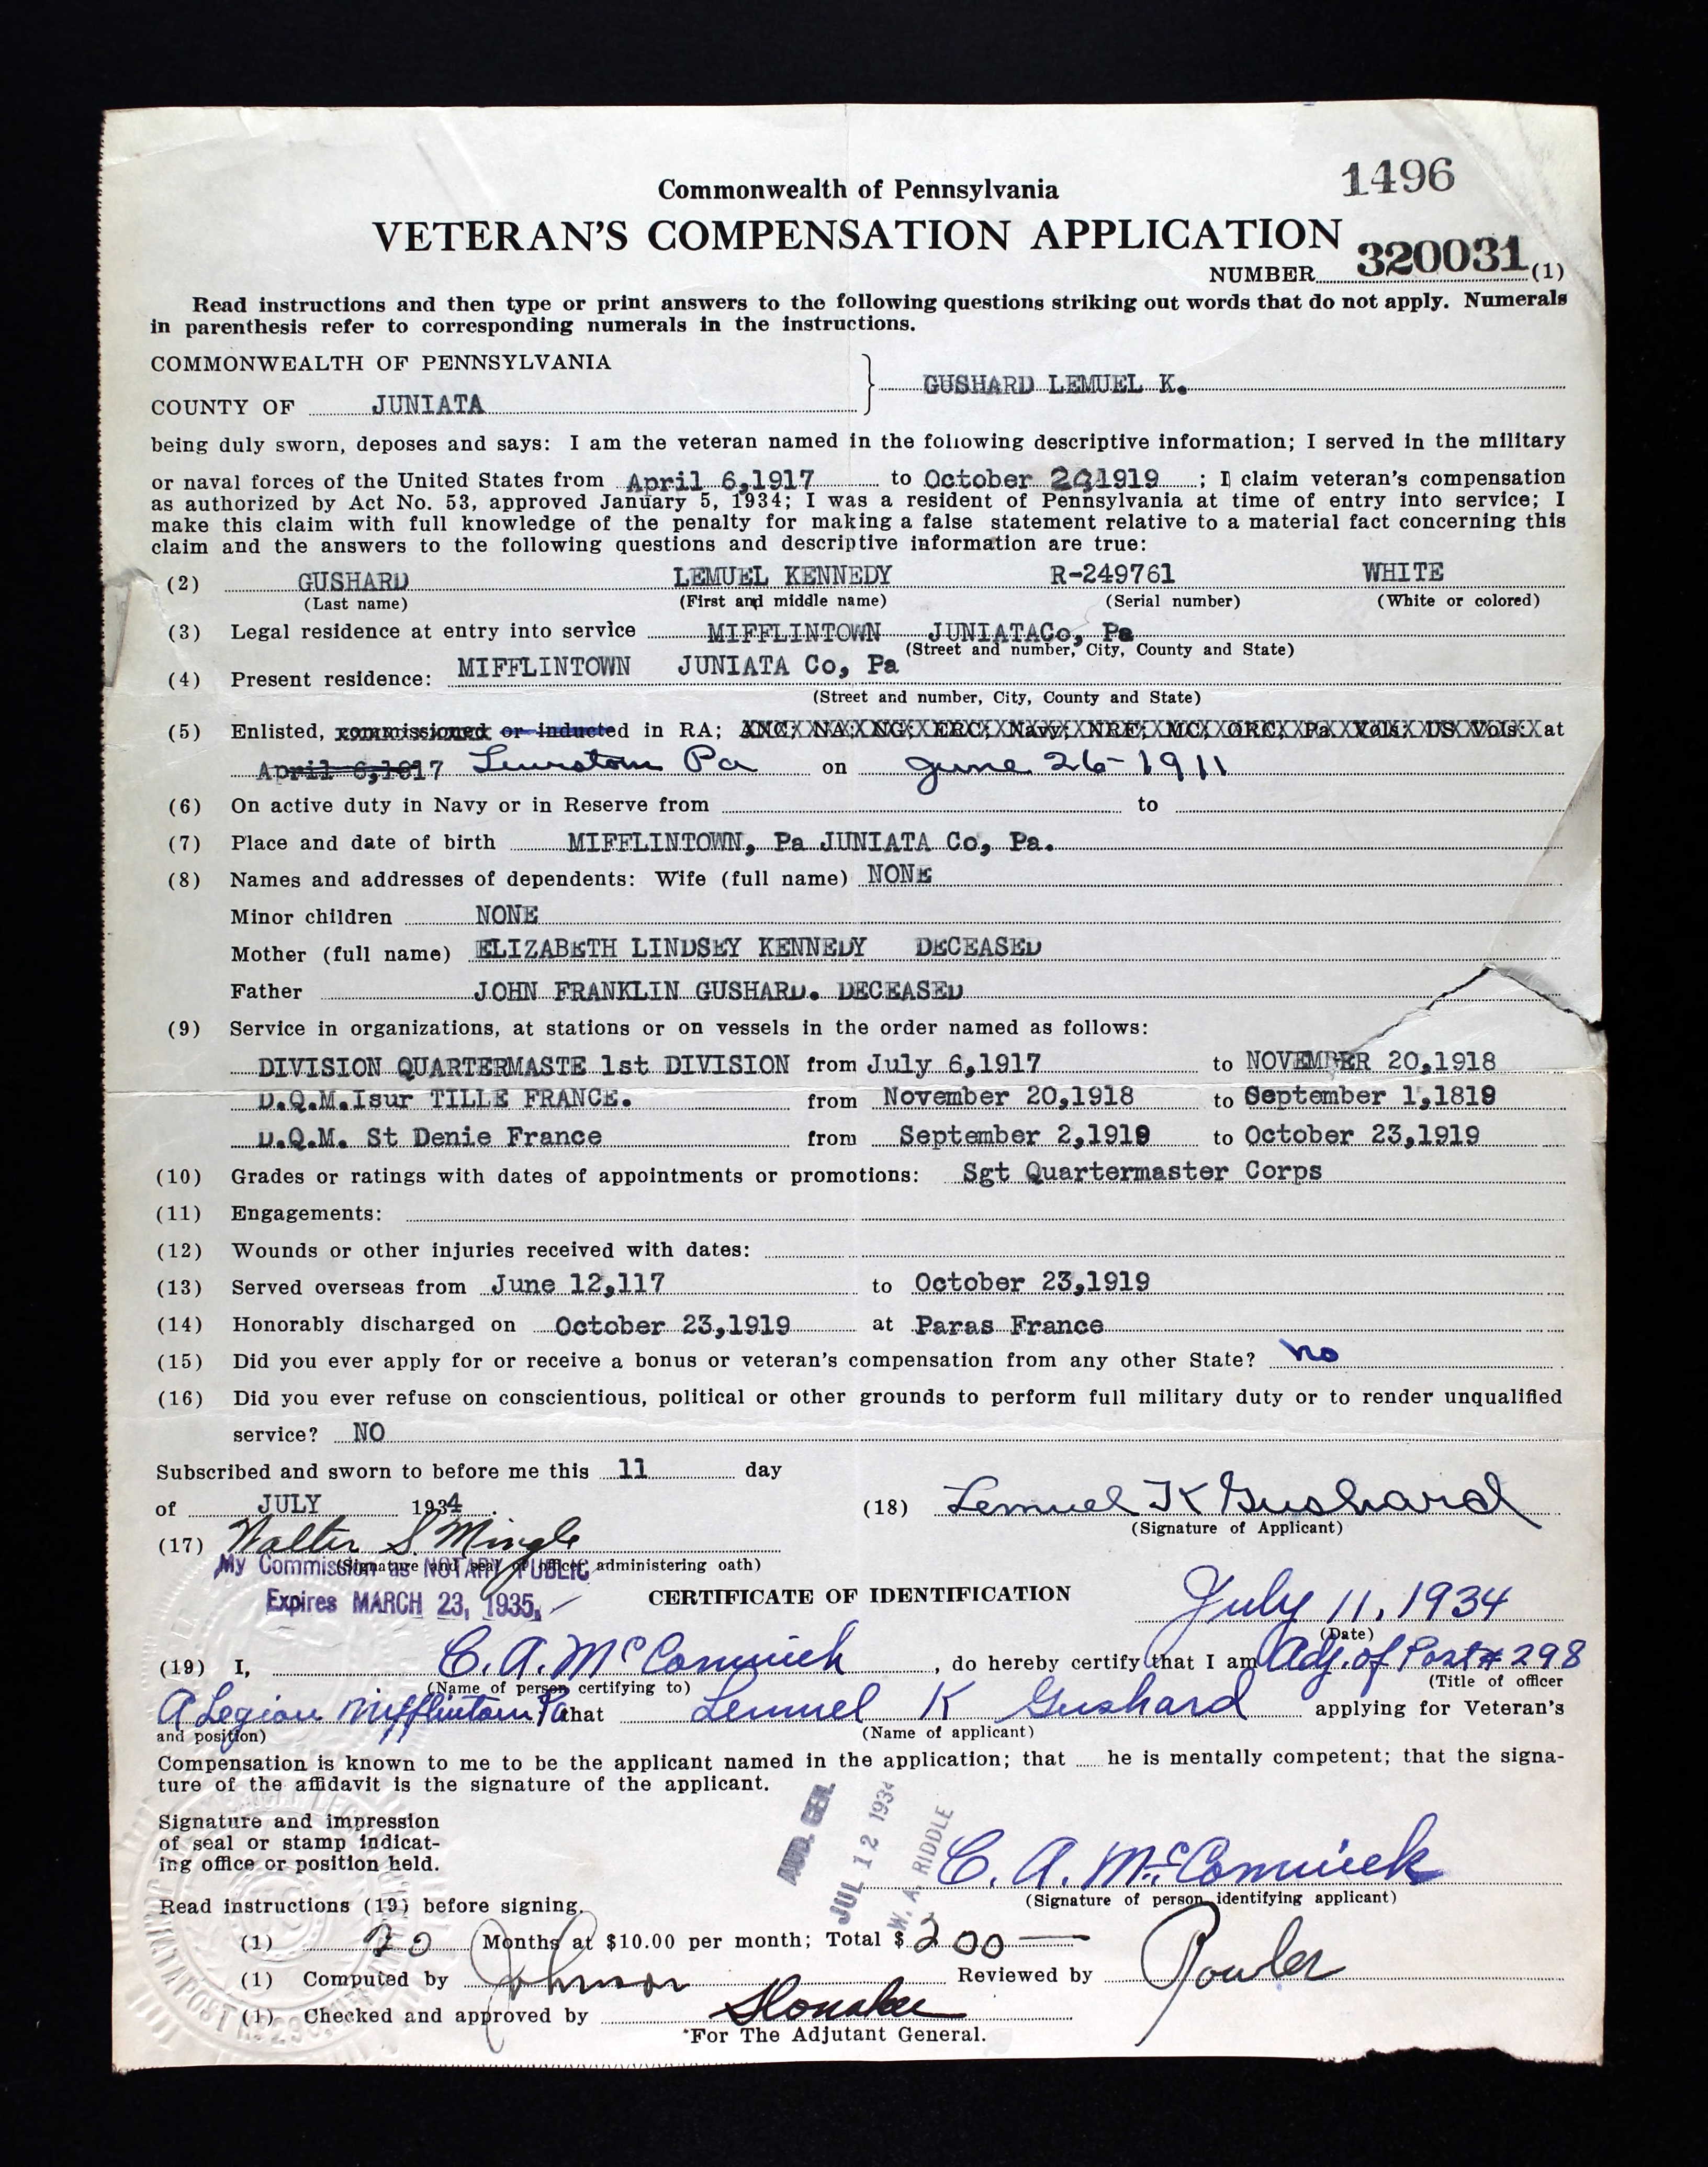 1496
Commonwealth of Pennsylvania
VETERAN'S COMPENSATION APPLICATION
NUMBER 320031 (1)
Read instructions and then type or print answers to the following questions striking out words that do not apply. Numerals
in parenthesis refer to corresponding numerals in the instructions.
COMMONWEALTH OF PENNSYLVANIA
GUSHARD LEMUEL K.
COUNTY OF JUNIATA
being duly sworn, deposes and says: I am the veteran named in the following descriptive information; I served in the military
or naval forces of the United States from April 6,1917 to October 1919 ; I claim veteran's compensation
as authorized by Act No. 53, approved January 5, 1934; I was a resident of Pennsylvania at time of entry into service; I
make this claim with full knowledge of the penalty for making a false statement relative to a material fact concerning this
claim and the answers to the following questions and descriptive information are true:
(2) GUSHARD LEMUEL KENNEDY R-249761 WHITE
(Last name) (First and middle name) (Serial number) (White or colored)
(3) Legal residence at entry into service MIFFLINTOWN JUNIATACo, Pa
(Street and number, City, County and State)
(4) Present residence: MIFFLINTOWN JUNIATA Co, Pa
(Street and number, City, County and State)
(5) Enlisted, commissioned or inducted in RA; ANC; NA; NG; ERC; Navy; NRF; MC; ORC; Pa Vols; US Vols: at
April 6,1917 Lewistown Pa on June 26-1911
(6) On active duty in Navy or in Reserve from to
(7) Place and date of birth MIFFLINTOWN, Pa JUNIATA Co, Pa.
(8) Names and addresses of dependents: Wife (full name) NONE
Minor children NONE
Mother (full name) ELIZABETH LINDSEY KENNEDY DECEASED
Father JOHN FRANKLIN GUSHARD. DECEASED
(9) Service in organizations, at stations or on vessels in the order named as follows:
DIVISION QUARTERMASTE 1st DIVISION from July 6,1917 to NOVEMBER 20,1918
D.Q.M.Isur TILLE FRANCE. from November 20,1918 to September 1,1819
D.Q.M. St Denie France from September 2,1919 to October 23,1919
(10) Grades or ratings with dates of appointments or promotions: Sgt Quartermaster Corps
(11) Engagements:
(12) Wounds or other injuries received with dates:
(13) Served overseas from June 12,117 to October 23,1919
(14) Honorably discharged on October 23,1919 at Paras France
(15) Did you ever apply for or receive a bonus or veteran's compensation from any other State? No
(16) Did you ever refuse on conscientious, political or other grounds to perform full military duty or to render unqualified
service? NO
Subscribed and sworn to before me this 11 day
of JULY 1934
(18) Lemuel K Gushard
(Signature of Applicant)
(17) Walter S. Mingle
(Signature and seal of officer administering oath)
My Commission as NOTARY PUBLIC
Expires MARCH 23, 1935.
CERTIFICATE OF IDENTIFICATION
July 11, 1934
(Date)
(19) I, C. A. McCormick , do hereby certify that I am Adj. of Post # 298
(Name of person certifying to) (Title of officer
A Legion Mifflintown Pa that Lemuel K Gushard applying for Veteran's
and position) (Name of applicant)
Compensation is known to me to be the applicant named in the application; that he is mentally competent; that the signa-
ture of the affidavit is the signature of the applicant.
AUD. GEN.
JUL 12 1934
W. A. RIDDLE
Signature and impression
of seal or stamp indicat-
ing office or position held.
C. A. McCormick
(Signature of person identifying applicant)
Read instructions (19) before signing.
(1) 20 Months at $10.00 per month; Total $ 200
(1) Computed by Johnson Reviewed by
(1) Checked and approved by
*For The Adjutant General.